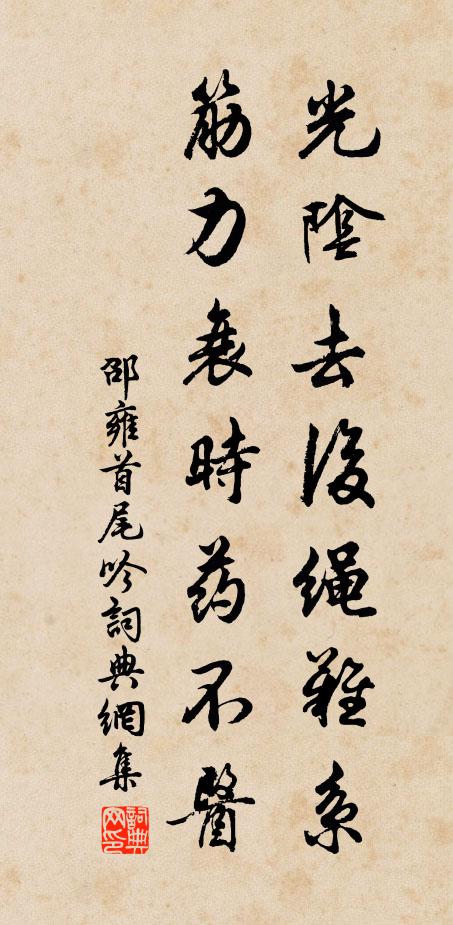 光陰去後绳難系
筋力衰時药不醫
邵雍首尾吟詞典網集
詞典网印